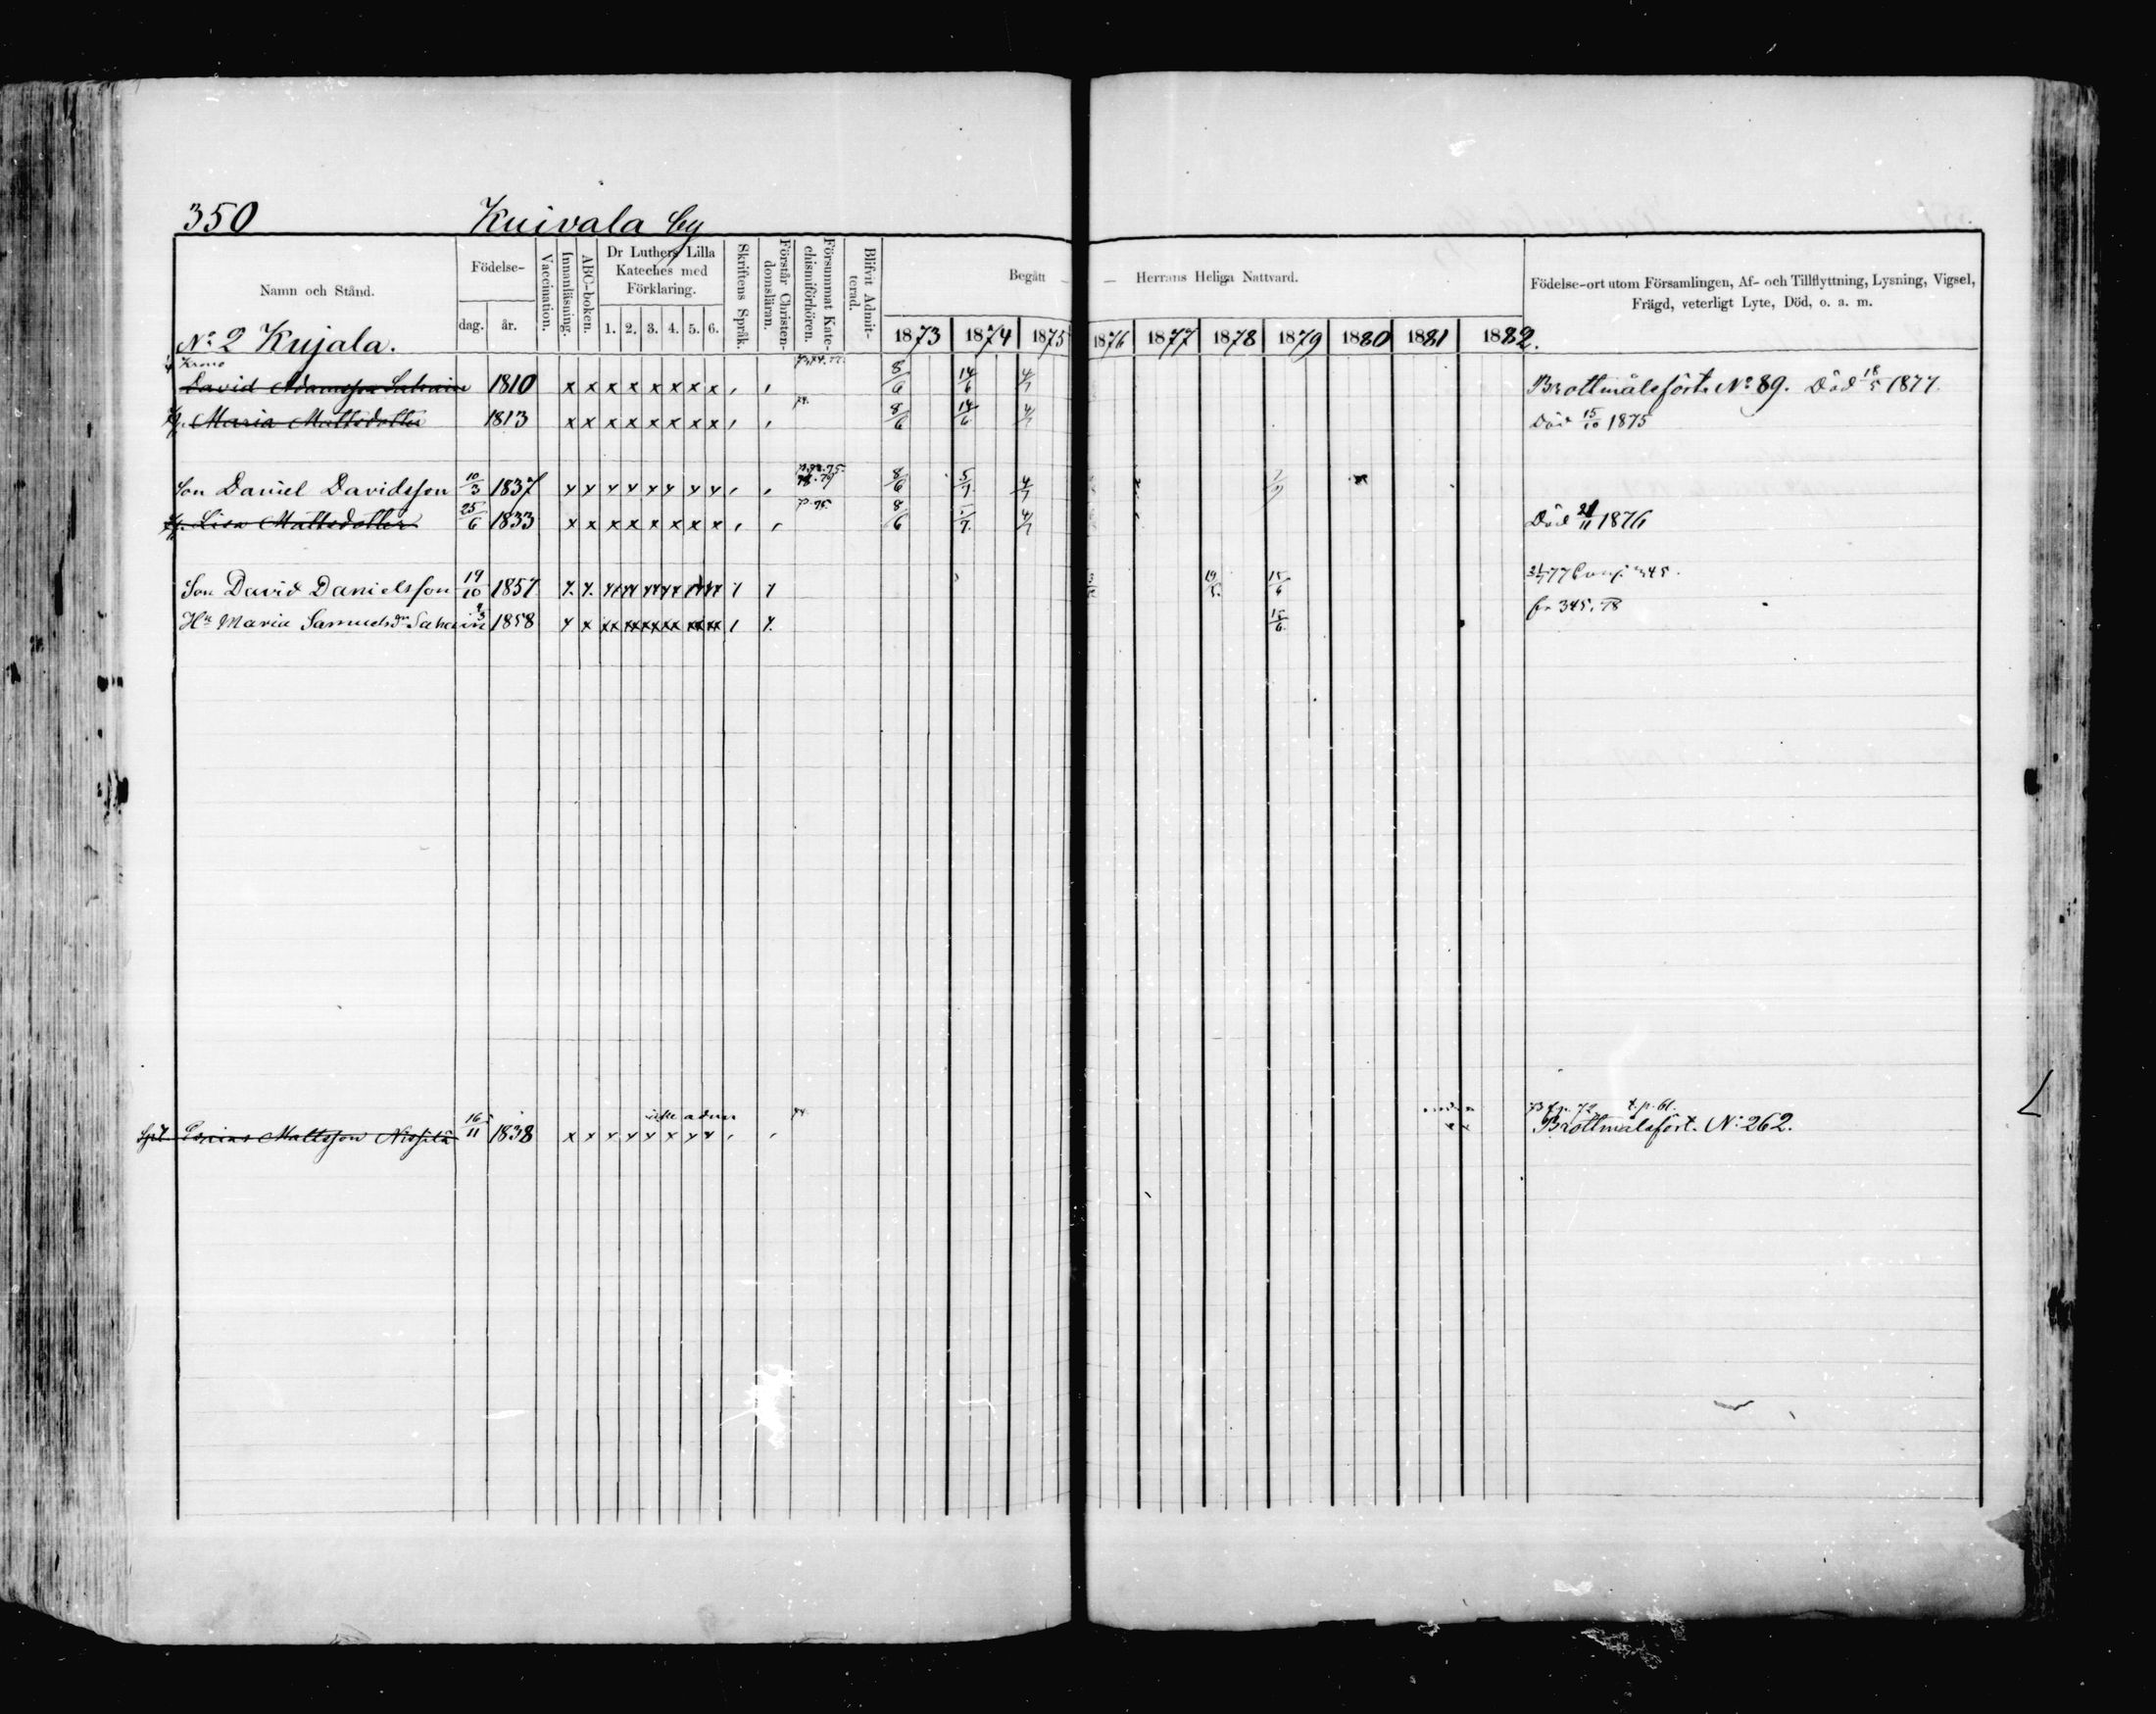 350 Kuivala by
Namn och Stånd.
Födelse-
dag. år.
Vaccination.
Innanläsning.
ABC-boken.
Dr Luthers Lilla
Kateches med
Förklaring.
1. 2. 3. 4. 5. 6.
Skriftens Språk.
Förstår Christen-
domsläran.
Försummat Kate-
chismiförhören.
Blifvit Admit-
terad.
Begått — — Herrans Heliga Nattvard.
1873 1874 1875 1876 1877 1878 1879 1880 1881 1882.
Födelse-ort utom Församlingen, Af- och Tillflyttning, Lysning, Vigsel,
Frägd, veterligt Lyte, Död, o. a. m.
No 2 Kujala.
Krono
David Adamsson 1810 x x x x x x x x 8/6 14/6 4/7 Brottmålsfört. No 89. Död 18/5 1877.
Maria Mattsdotter 1813 x x x x x x x x 8/6 14/6 4/7 Död 15/10 1875
Son Daniel Davidsson 10/3 1837 x x x x x x x x 8/6 5/7 4/7
Lisa Mattsdotter 25/6 1833 x x x x x x x x 8/6 4/7 Död 21/11 1876
Son David Danielsson 19/10 1857 19/5 15/6 345.
Hu Maria Samuelsdr 1858 15/6 fr 345. 78
icke adm
Mattsson 16/11 1838 x x x x x x x x Brottmålsfört. No 262.